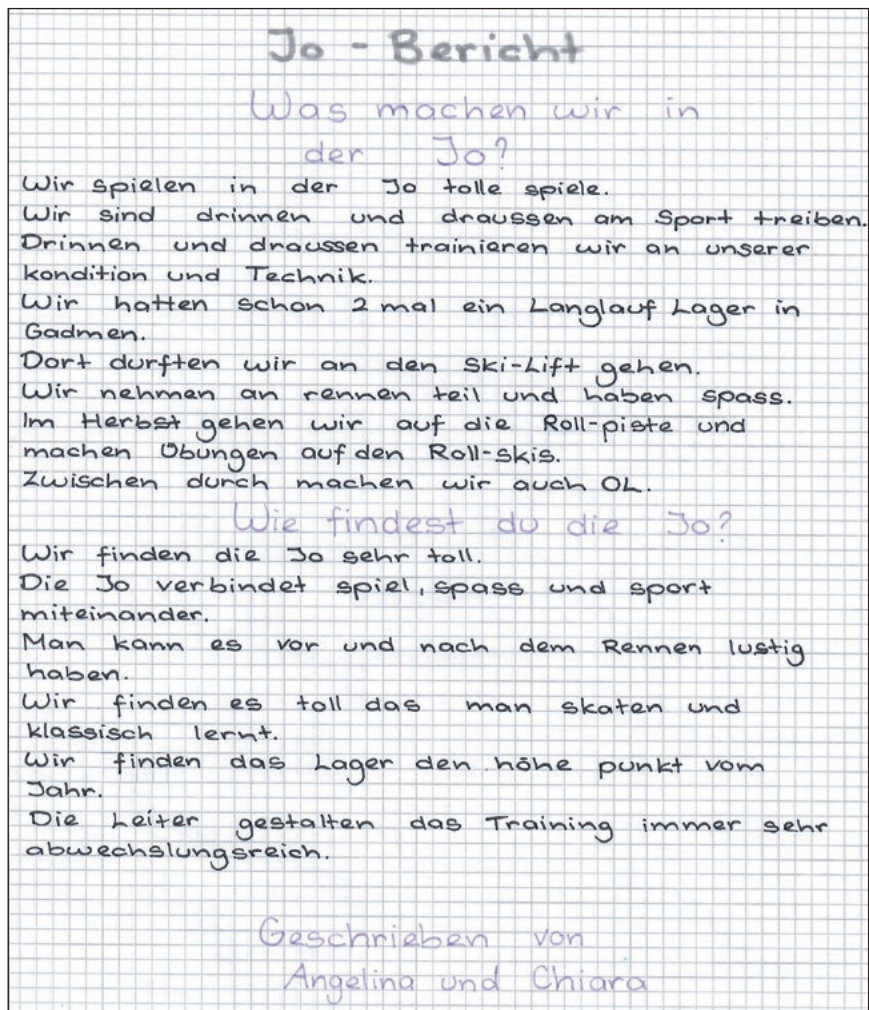 Jo - Bericht
Was machen wir in
der Jo?
Wir spielen in der Jo tolle spiele.
Wir sind drinnen und draussen am Sport treiben.
Drinnen und draussen trainieren wir an unserer
kondition und Technik.
Wir hatten schon 2 mal ein Langlauf Lager in
Gadmen.
Dort durften wir an den Ski-Lift gehen.
Wir nehmen an rennen teil und haben spass.
Im Herbst gehen wir auf die Roll-piste und
machen Übungen auf den Roll-skis.
Zwischen durch machen wir auch OL.
Wie findest du die Jo?
Wir finden die Jo sehr toll.
Die Jo verbindet spiel, spass und sport
miteinander.
Man kann es vor und nach dem Rennen lustig
haben.
Wir finden es toll das man skaten und
klassisch lernt.
Wir finden das Lager den höhe punkt vom
Jahr.
Die Leiter gestalten das Training immer sehr
abwechslungsreich.
Geschrieben von
Angelina und Chiara